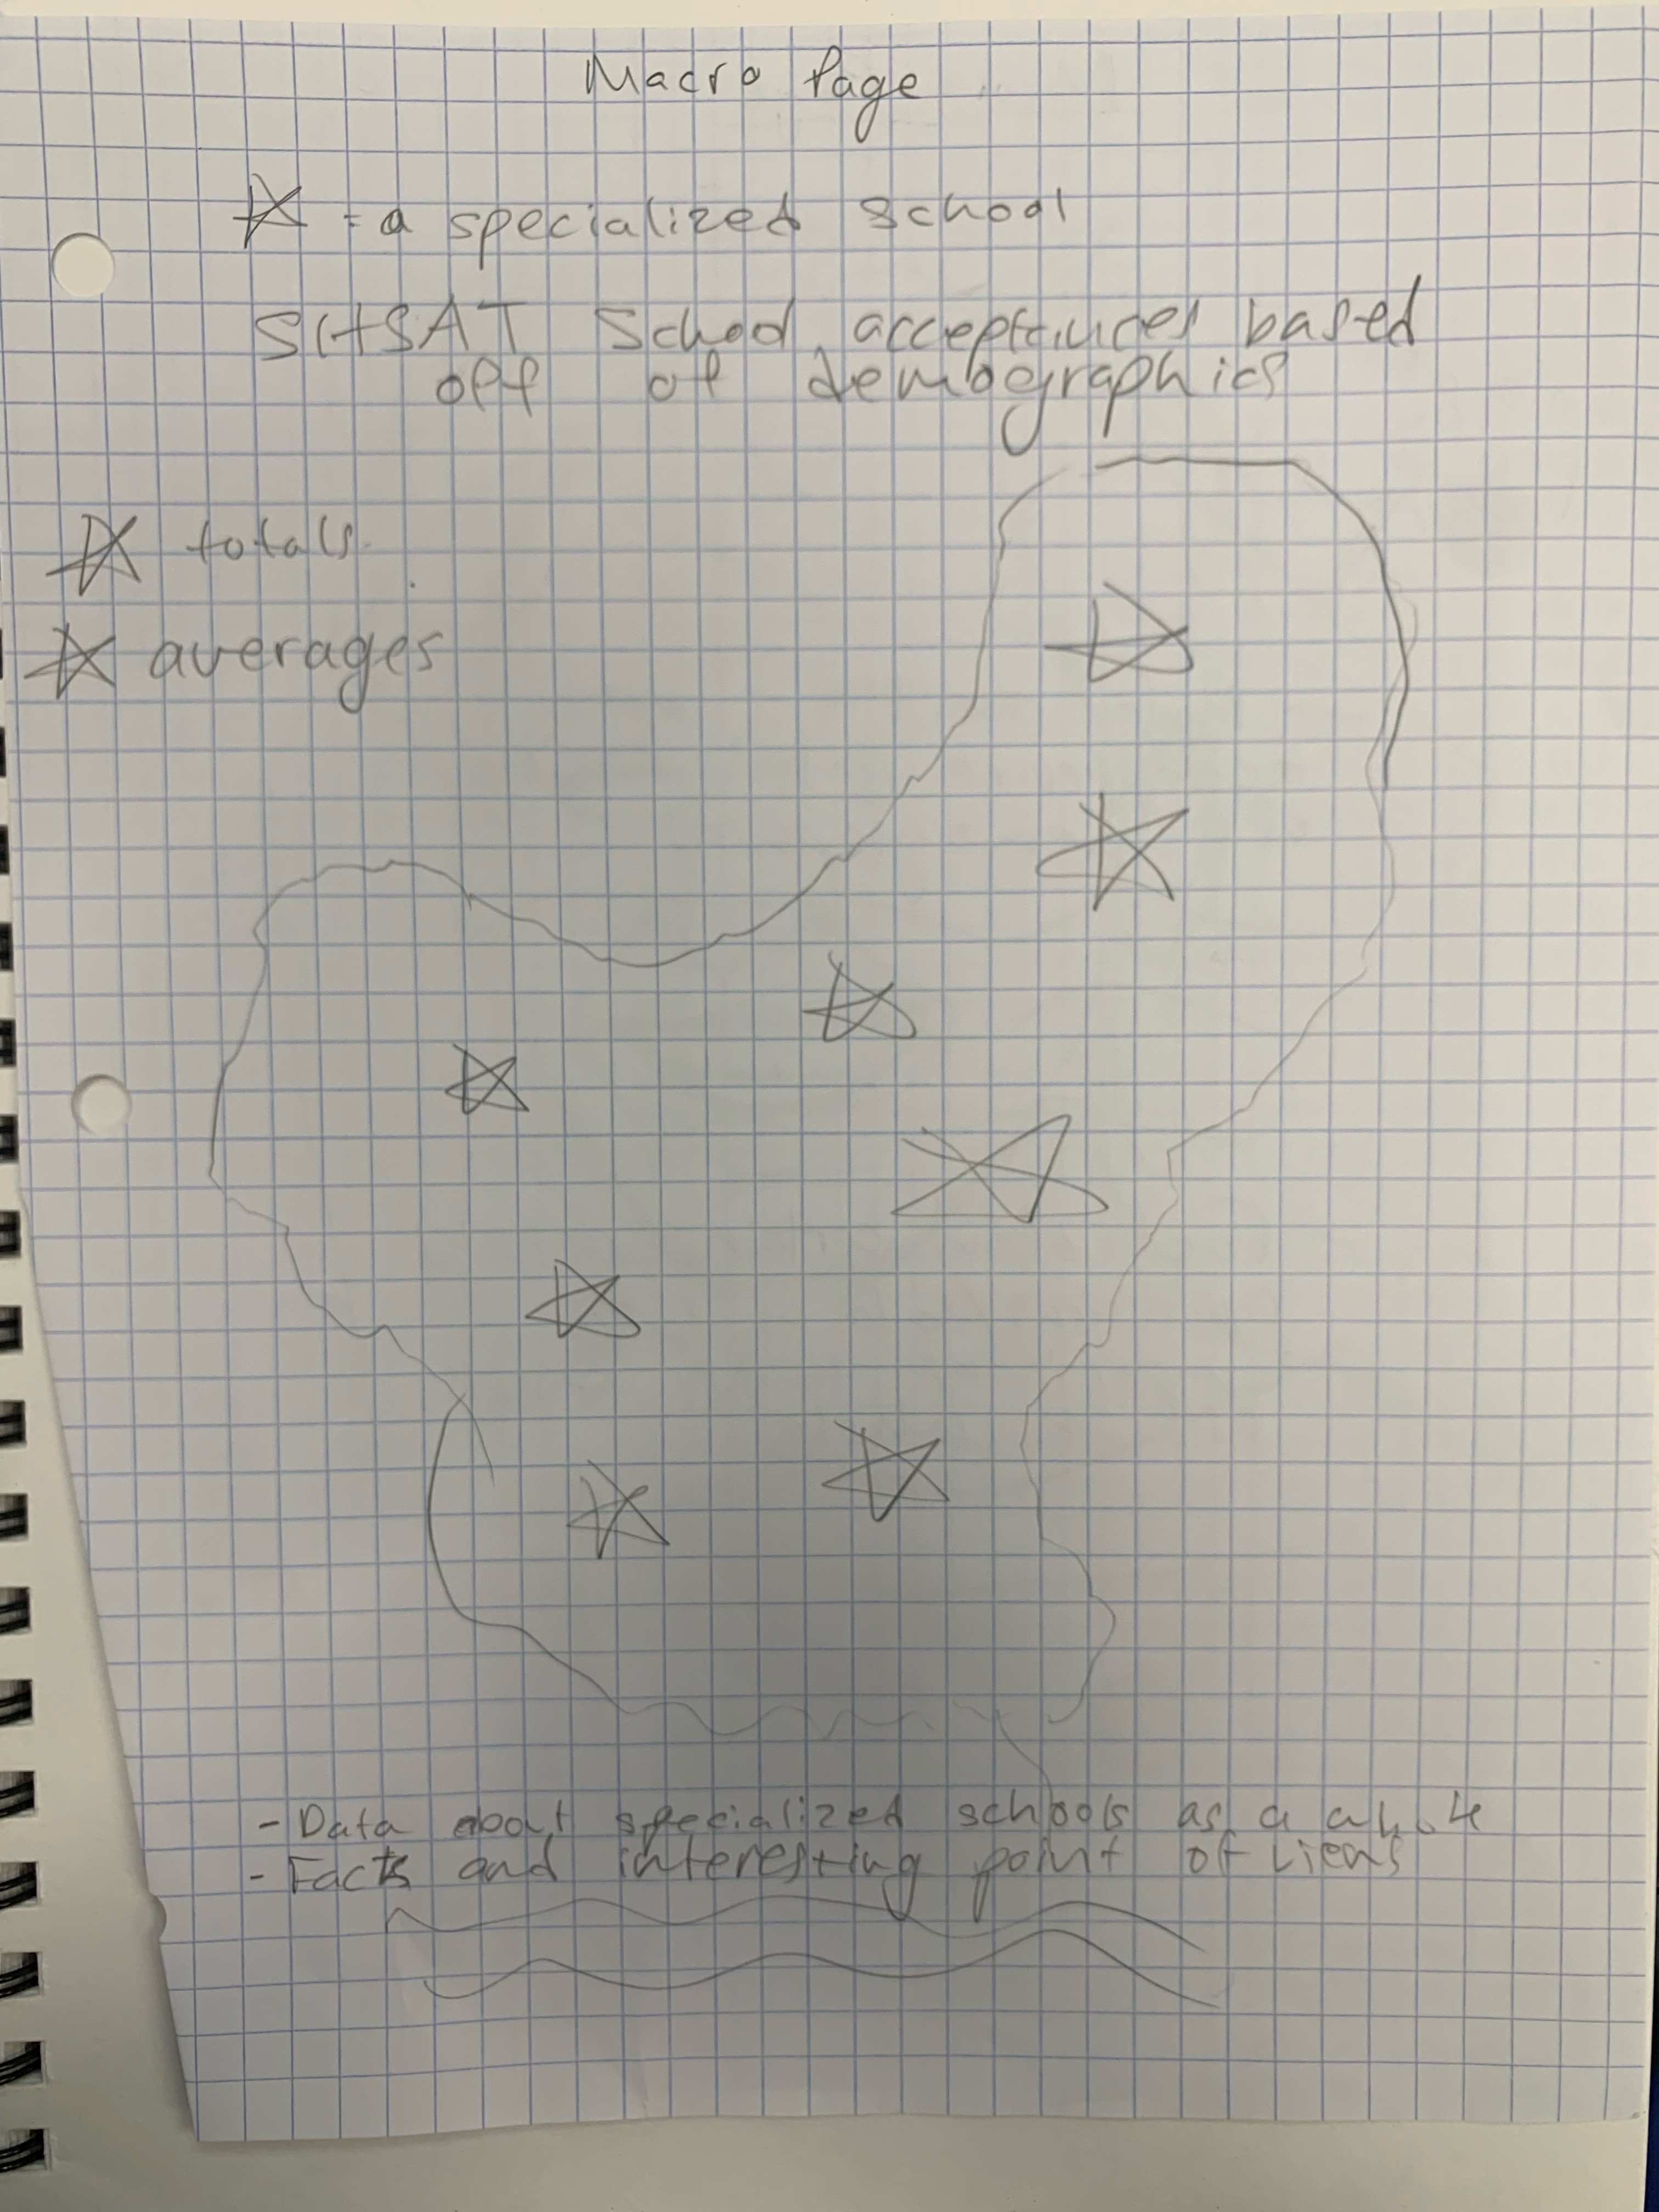 Macro Page
= a specialized school
SHSAT School acceptances based
off of demographics
totals
averages
- Data about specialized schools as a whole
- Facts and interesting point of views